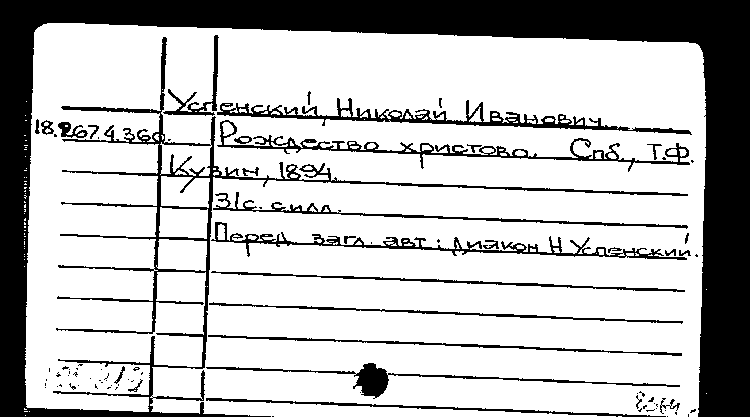 Успенский, Николай Иванович.
18.267.4.360. Рождество христово. Спб., Т.Ф.
Кузин, 1894.
31с. с илл.
Перед загл. авт: диакон Н Успенский.